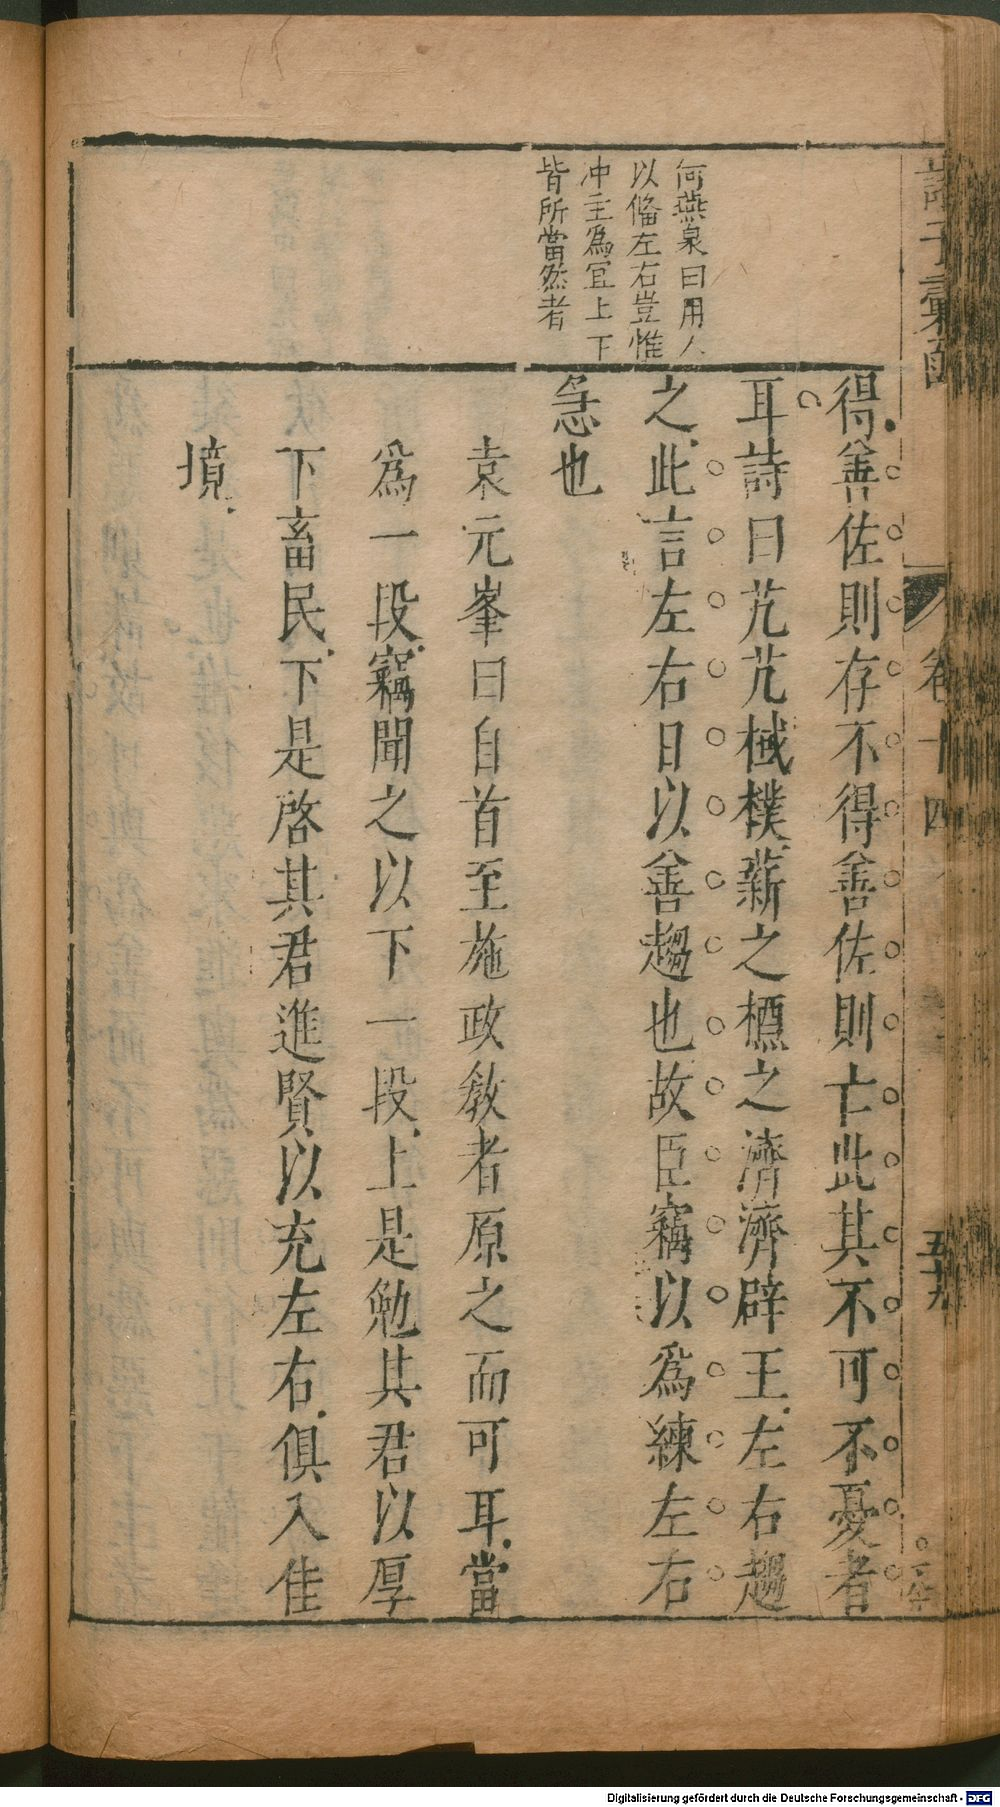 何燕泉曰用人
以脩左右豈惟
冲主為宜上下
皆所當然者
得善佐則存不得善佐則亡此其不可不憂者
耳詩曰芃芃棫樸薪之槱之濟濟辟王左右趨
之此言左右日以善趨也故臣竊以為練左右
急也
袁元峯曰自首至施政教者原之而可耳當
為一段竊聞之以下一段上是勉其君以厚
下畜民下是啓其君進賢以充左右俱入佳
境
諸子彙函
卷十四
五十九
Digitalisierung gefördert durch die Deutsche Forschungsgemeinschaft - DFG